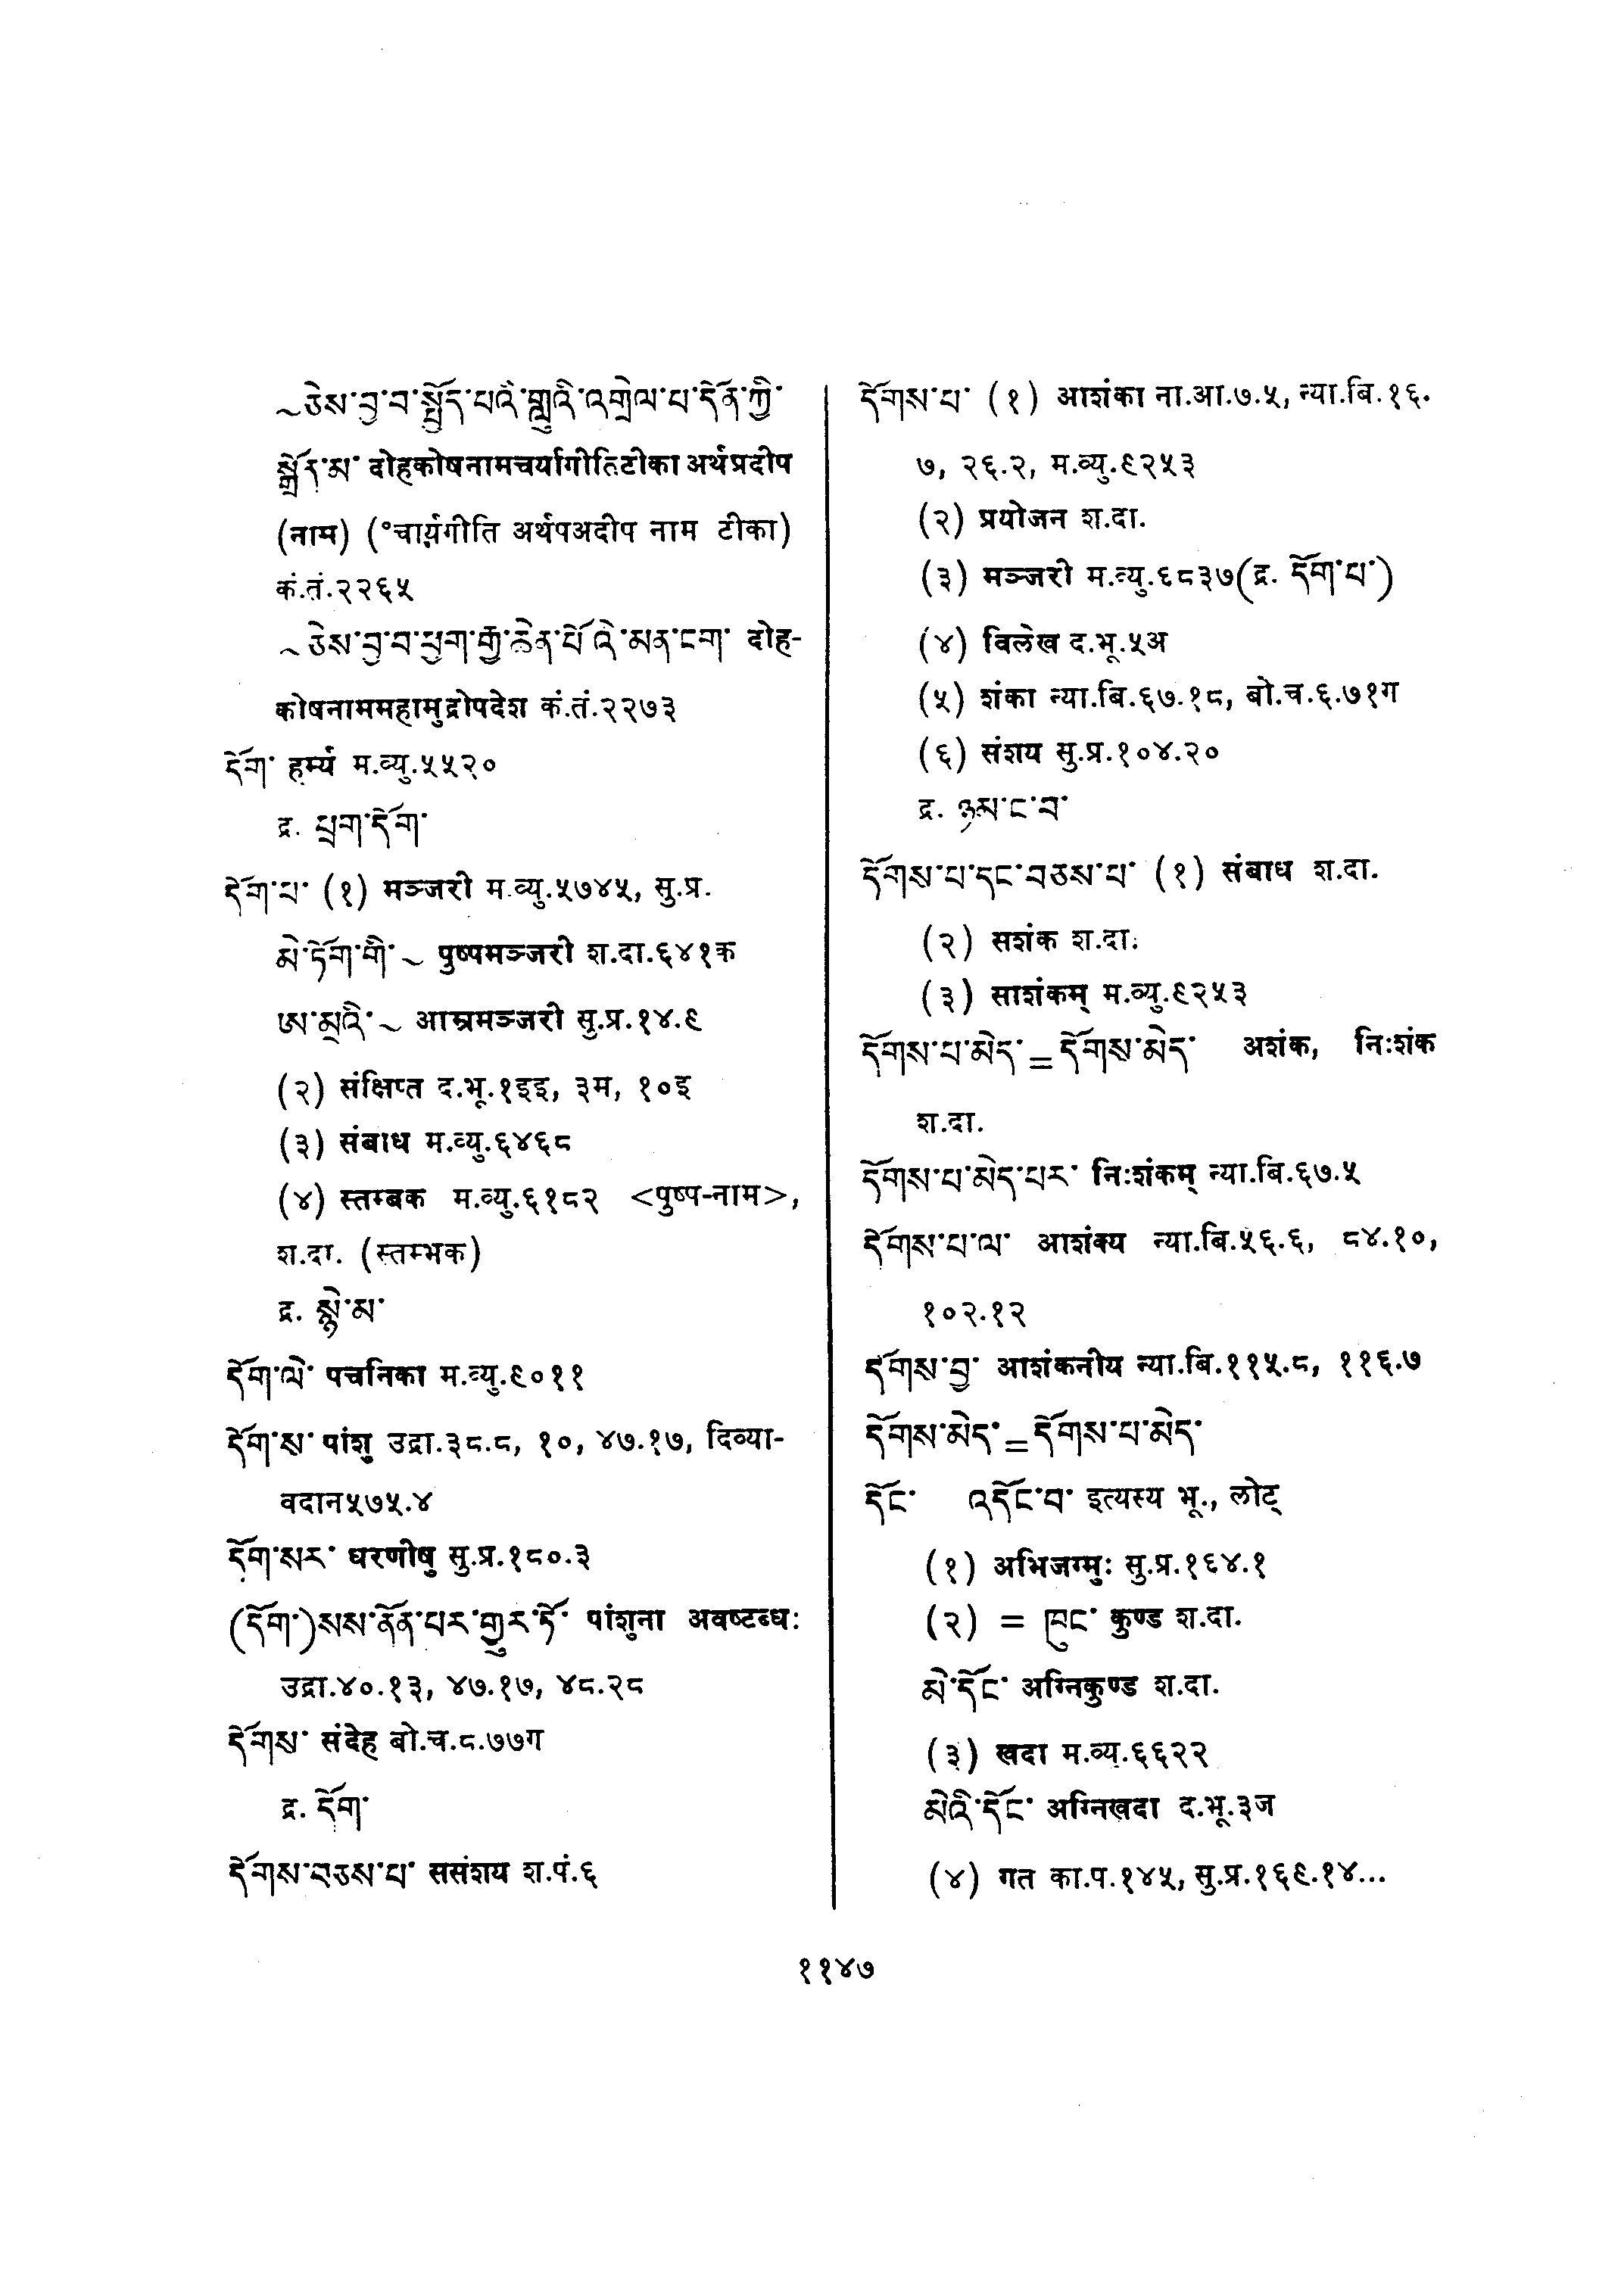 ~ཅེས་བྱ་བ་སྤྱོད་པའི་གླུའི་འགྲེལ་པ་དོན་ཀྱི་
སྒྲོན་མ་ दोहकोषनामचर्यागीतिटीका अर्थप्रदीप
(नाम) (°चार्यगीति अर्थपअदीप नाम टीका)
कं.तं.२२६५
~ཅེས་བྱ་བ་ཕྱག་རྒྱ་ཆེན་པོའི་མན་ངག་ दोह-
कोषनाममहामुद्रोपदेश कं.तं.२२७३
དོག་ हर्म्य म.व्यु.५५२०
द्र. ཕྲག་དོག་
དོག་པ་ (१) मञ्जरी म.व्यु.५७४५, सु.प्र.
མེ་ཏོག་གི་~ पुष्पमञ्जरी श.दा.६४१क
ཨ་མྲའི་~ आम्रमञ्जरी सु.प्र.१४.९
(२) संक्षिप्त द.भू.१इइ, ३म, १०इ
(३) संबाध म.व्यु.६४६८
(४) स्तम्बक म.व्यु.६१८२ <पुष्प-नाम>,
श.दा. (स्तम्भक)
द्र. སྙེ་མ་
དོག་ལེ་ पचनिका म.व्यु.९०११
དོག་ས་ पांशु उद्रा.३८.८, १०, ४७.१७, दिव्या-
वदान५७५.४
དོག་སར་ धरणीषु सु.प्र.१८०.३
(དོག་)སས་ནོན་པར་གྱུར་ཏོ་ पांशुना अवष्टब्धः
उद्रा.४०.१३, ४७.१७, ४८.२८
དོགས་ संदेह बो.च.८.७७ग
द्र. དོག་
དོགས་བཅས་པ་ ससंशय श.पं.६
དོགས་པ་ (१) आशंका ना.आ.७.५, न्या.बि.१६.
७, २६.२, म.व्यु.९२५३
(२) प्रयोजन श.दा.
(३) मञ्जरी म.व्यु.६८३७(द्र. དོག་པ་)
(४) विलेख द.भू.५अ
(५) शंका न्या.बि.६७.१८, बो.च.६.७१ग
(६) संशय सु.प्र.१०४.२०
द्र. ཉམ་ང་བ་
དོགས་པ་དང་བཅས་པ་ (१) संबाध श.दा.
(२) सशंक श.दा.
(३) साशंकम् म.व्यु.९२५३
དོགས་པ་མེད་=དོགས་མེད་ अशंक, निःशंक
श.दा.
དོགས་པ་མེད་པར་ निःशंकम् न्या.बि.६७.५
དོགས་པ་ལ་ आशंक्य न्या.बि.५६.६, ८४.१०,
१०२.१२
དོགས་བྱ་ आशंकनीय न्या.बि.११५.८, ११६.७
དོགས་མེད་=དོགས་པ་མེད་
དོང་ འདོང་བ་ इत्यस्य भू., लोट्
(१) अभिजग्मुः सु.प्र.१६४.१
(२) = ཁུང་ कुण्ड श.दा.
མེ་དོང་ अग्निकुण्ड श.दा.
(३) खदा म.व्यु.६६२२
མེའི་དོང་ अग्निखदा द.भू.३ज
(४) गत का.प.१४५, सु.प्र.१६९.१४...
११४७